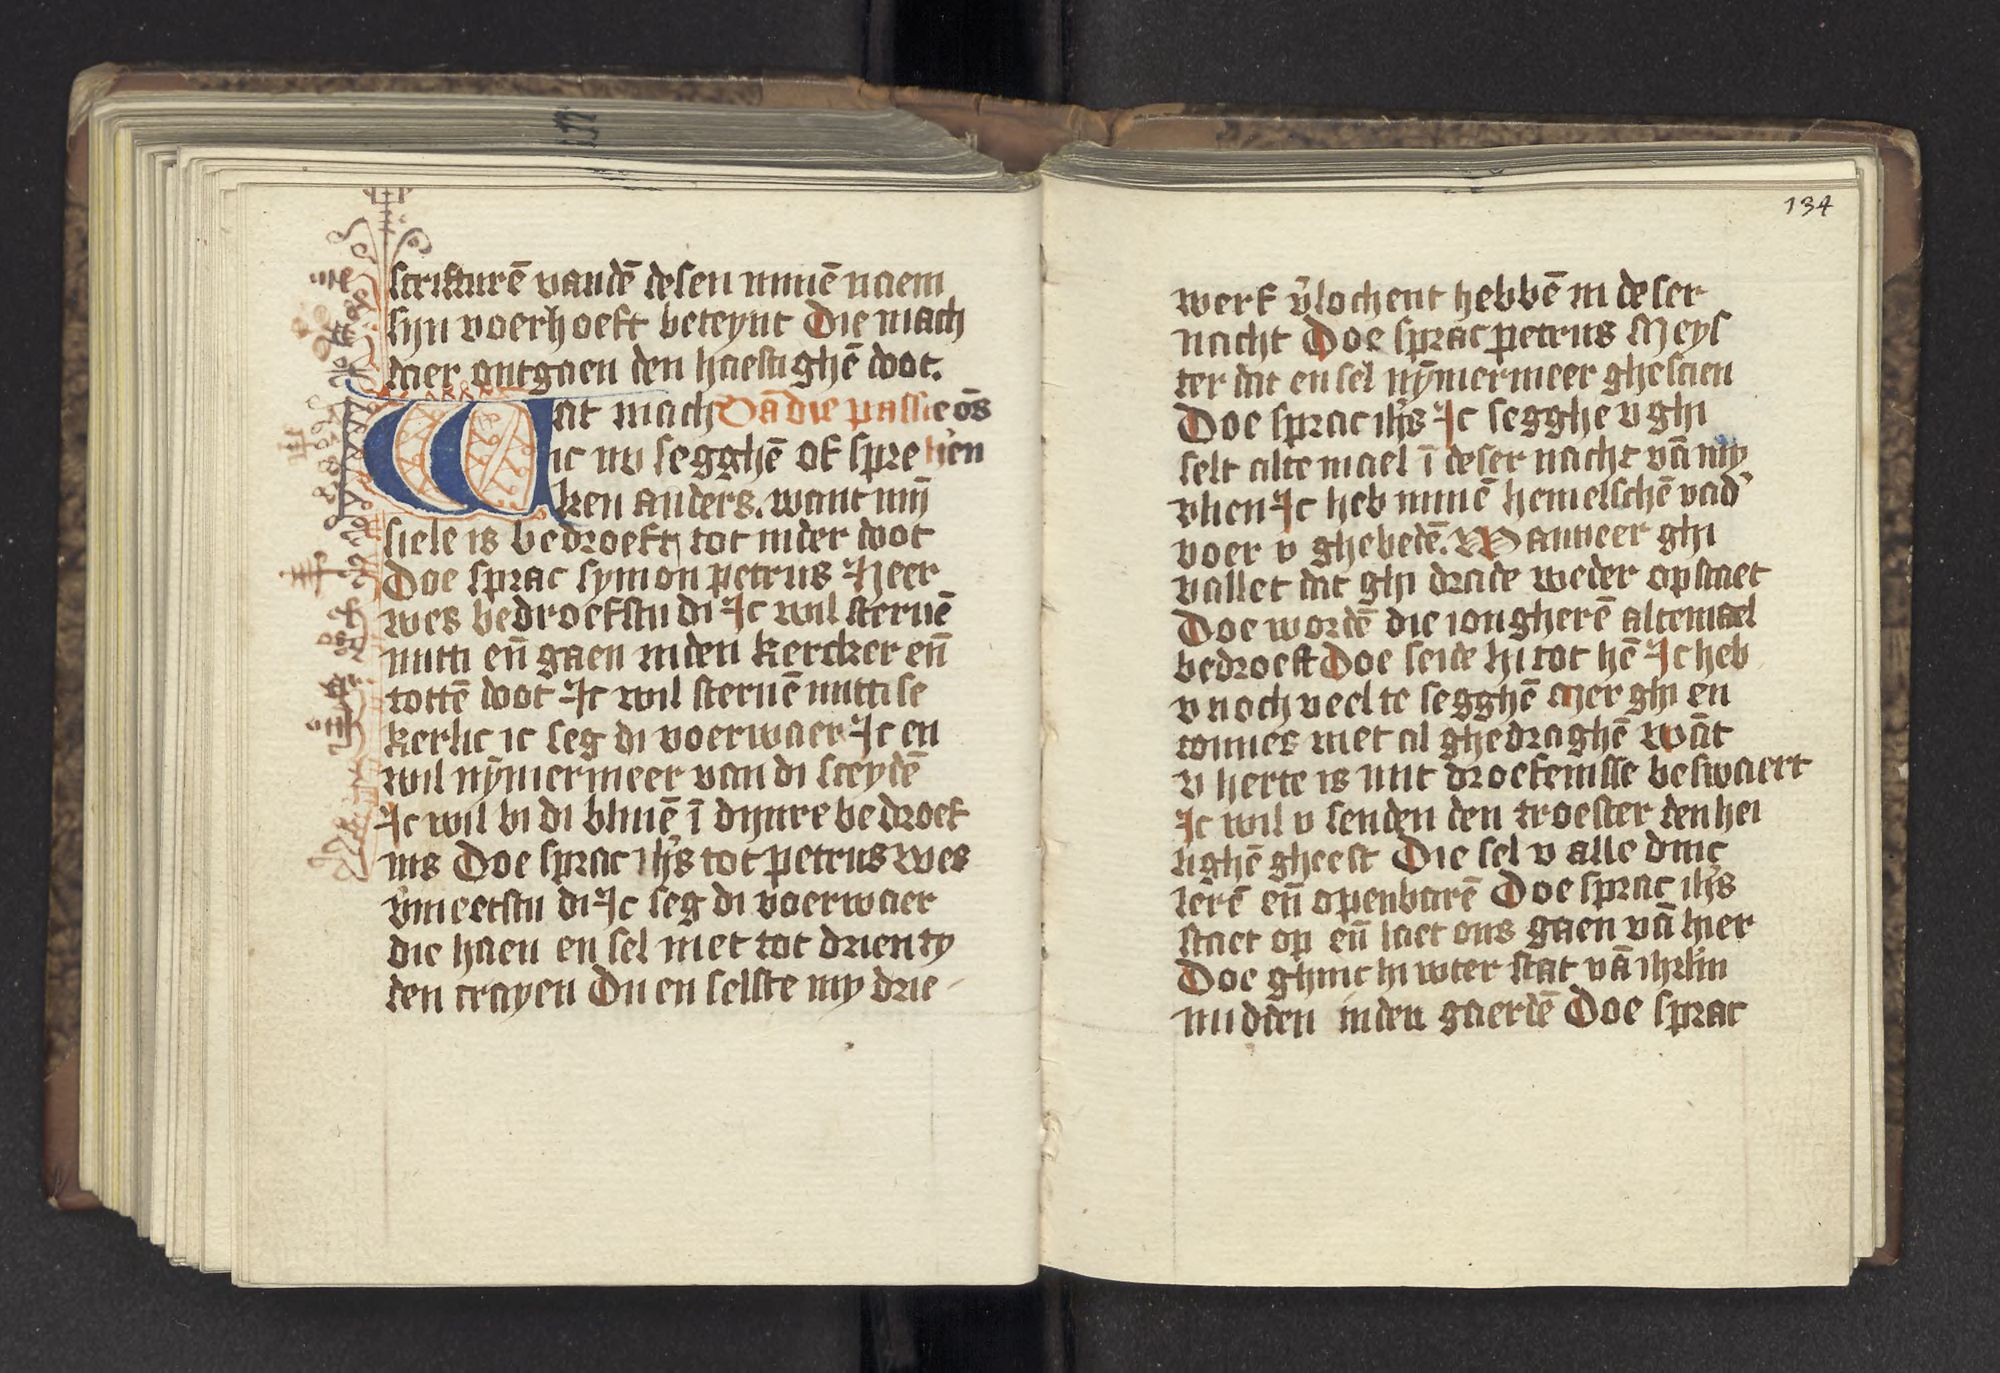 scrifturē vandē desen minnē naem
sijn voerhoeft beteynt Die mach
daer ontgaen den haestighē doot.
Wat mach Vā die passie ōs
ic nu segghē of spre hēn
ken anders. want mijn
siele is bedroeft tot inder doot
Doe sprac symon petrus Heer
wes bedroefstu di Ic wil steruē
mitti en̄ gaen inden kercker en̄
tottē doot Ic wil steruē mitti se
kerlic ic seg di voerwaer Ic en
wil nȳmermeer van di sceydē
Ic wil bi di bliuē ī dijnre bedroef
nis Doe sprac ihs̄ tot petrus wes
v̄meetstu di Ic seg di voerwaer
die haen en sel niet tot drien ty
den crayen Du en selste my drie
134
werf v̄lochent hebbē in deser
nacht Doe sprac petrus Meys
ter dat en sel nȳmermeer ghescien
Doe sprac ihs̄ Ic segghe v ghi
selt alte mael ī deser nacht vā my
vlien Ic heb minē hemelschē vad'
voer v ghebedē. Wanneer ghi
vallet dat ghi drade weder opstaet
Doe wordē die iongherē altemael
bedroeft Doe seide hi tot hē Ic heb
v noch veel te segghē Mer ghi en
connes niet al ghedraghē Wāt
v herte is mit droefenisse beswaert
Ic wil v senden den troester den hei
lighē gheest Die sel v alle dinc
lerē en̄ openbarē Doe sprac ihs̄
staet op en̄ laet ons gaen vā hier
Doe ghinc hi wter stat vā ihrlm
midden inden gaerdē Doe sprac